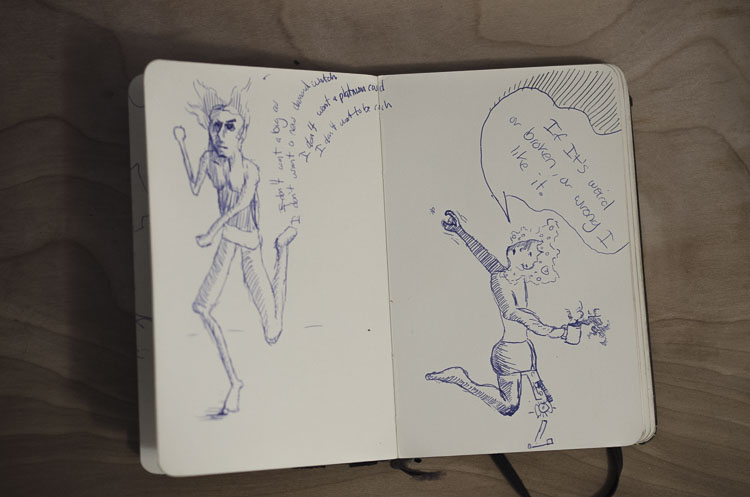 I don't want a big car
I don't want a new diamond watch
I don't want a platinum card
I don't want to be rich
If It's weird
or broken, or wrong I
like it.